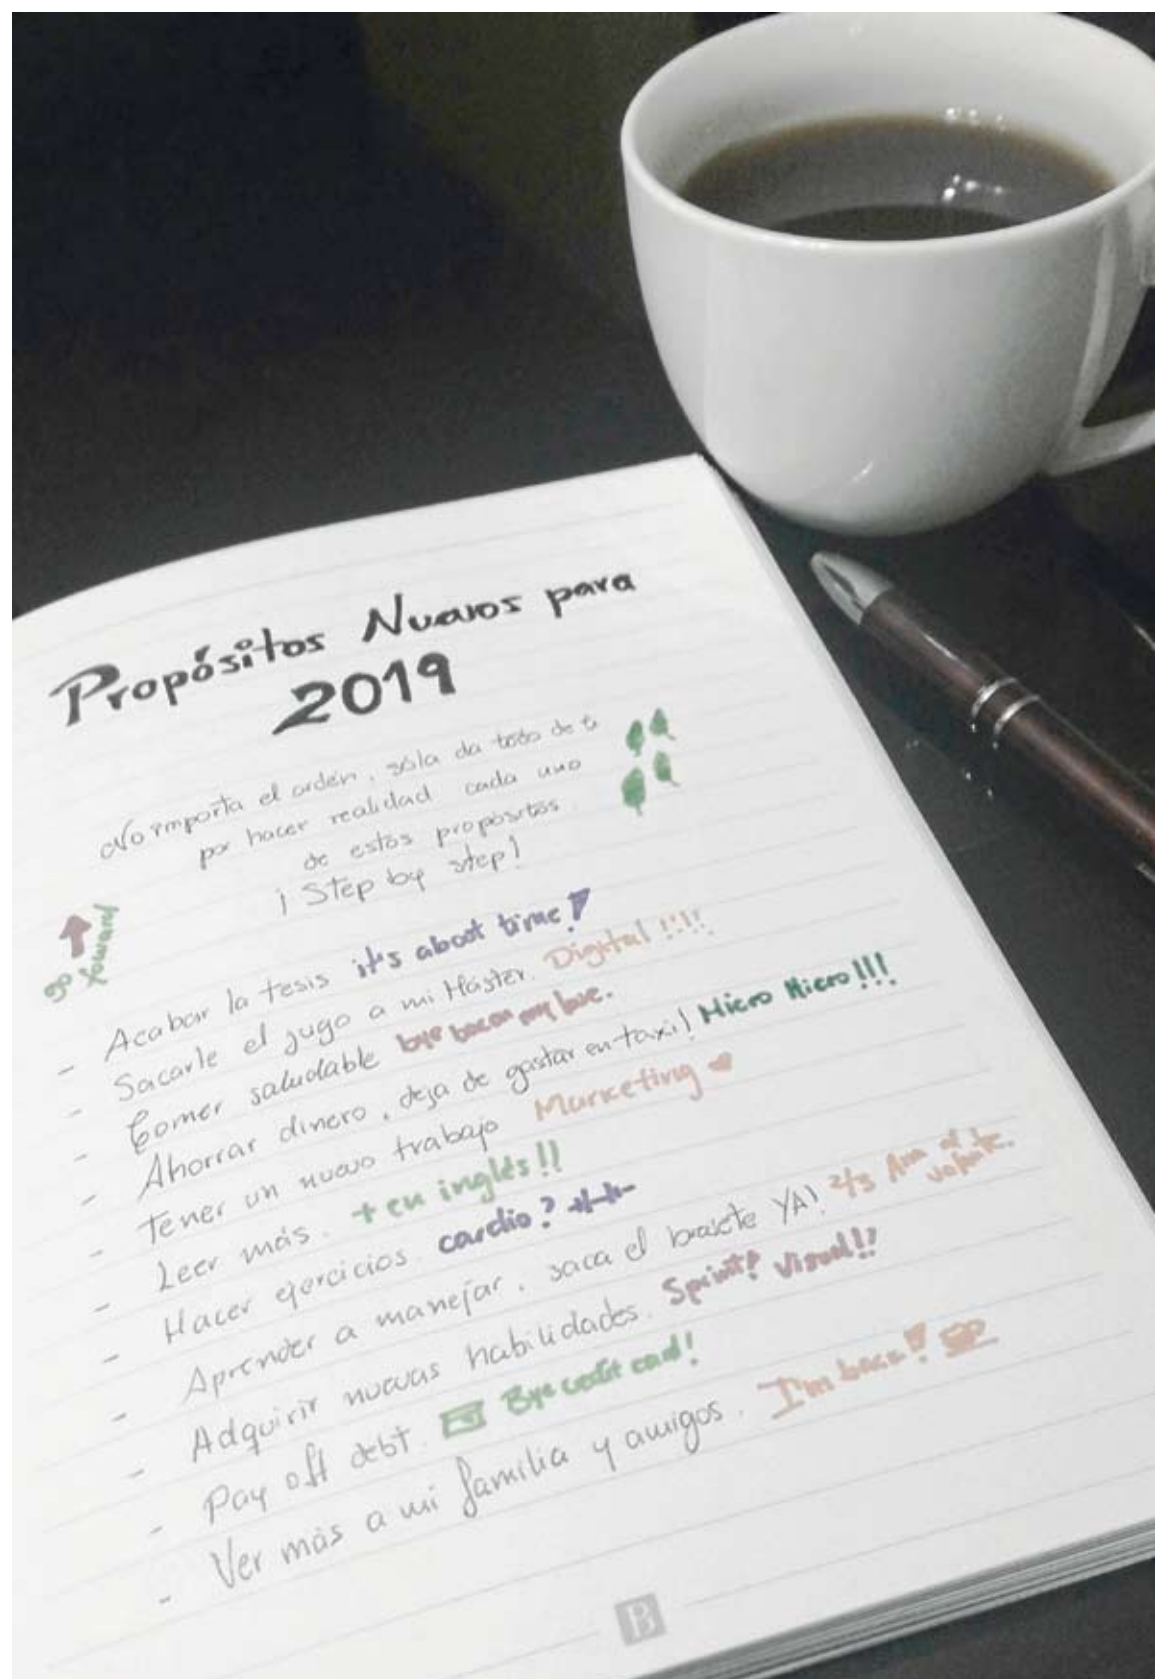 Propósitos Nuevos para
2019
No importa el orden, sóla da todo de ti
por hacer realidad cada uno
de estos propósitos.
¡Step by step!
go foward
- Acabar la tesis it's about time!
- Sacarle el jugo a mi Máster. Digital!!!!
- Comer saludable bye bacon my love.
- Ahorrar dinero, deja de gastar en taxi! Micro Micro!!!
- Tener un nuevo trabajo Marketing
- Leer más. + en inglés!!
- Hacer ejercicios. cardio?
- Aprender a manejar, saca el brevete YA! Ana al
- Adquirir nuevas habilidades. Sprint? Visual!?
- Pay off debt. Bye credit card!
- Ver más a mi familia y amigos. I'm back!!
B